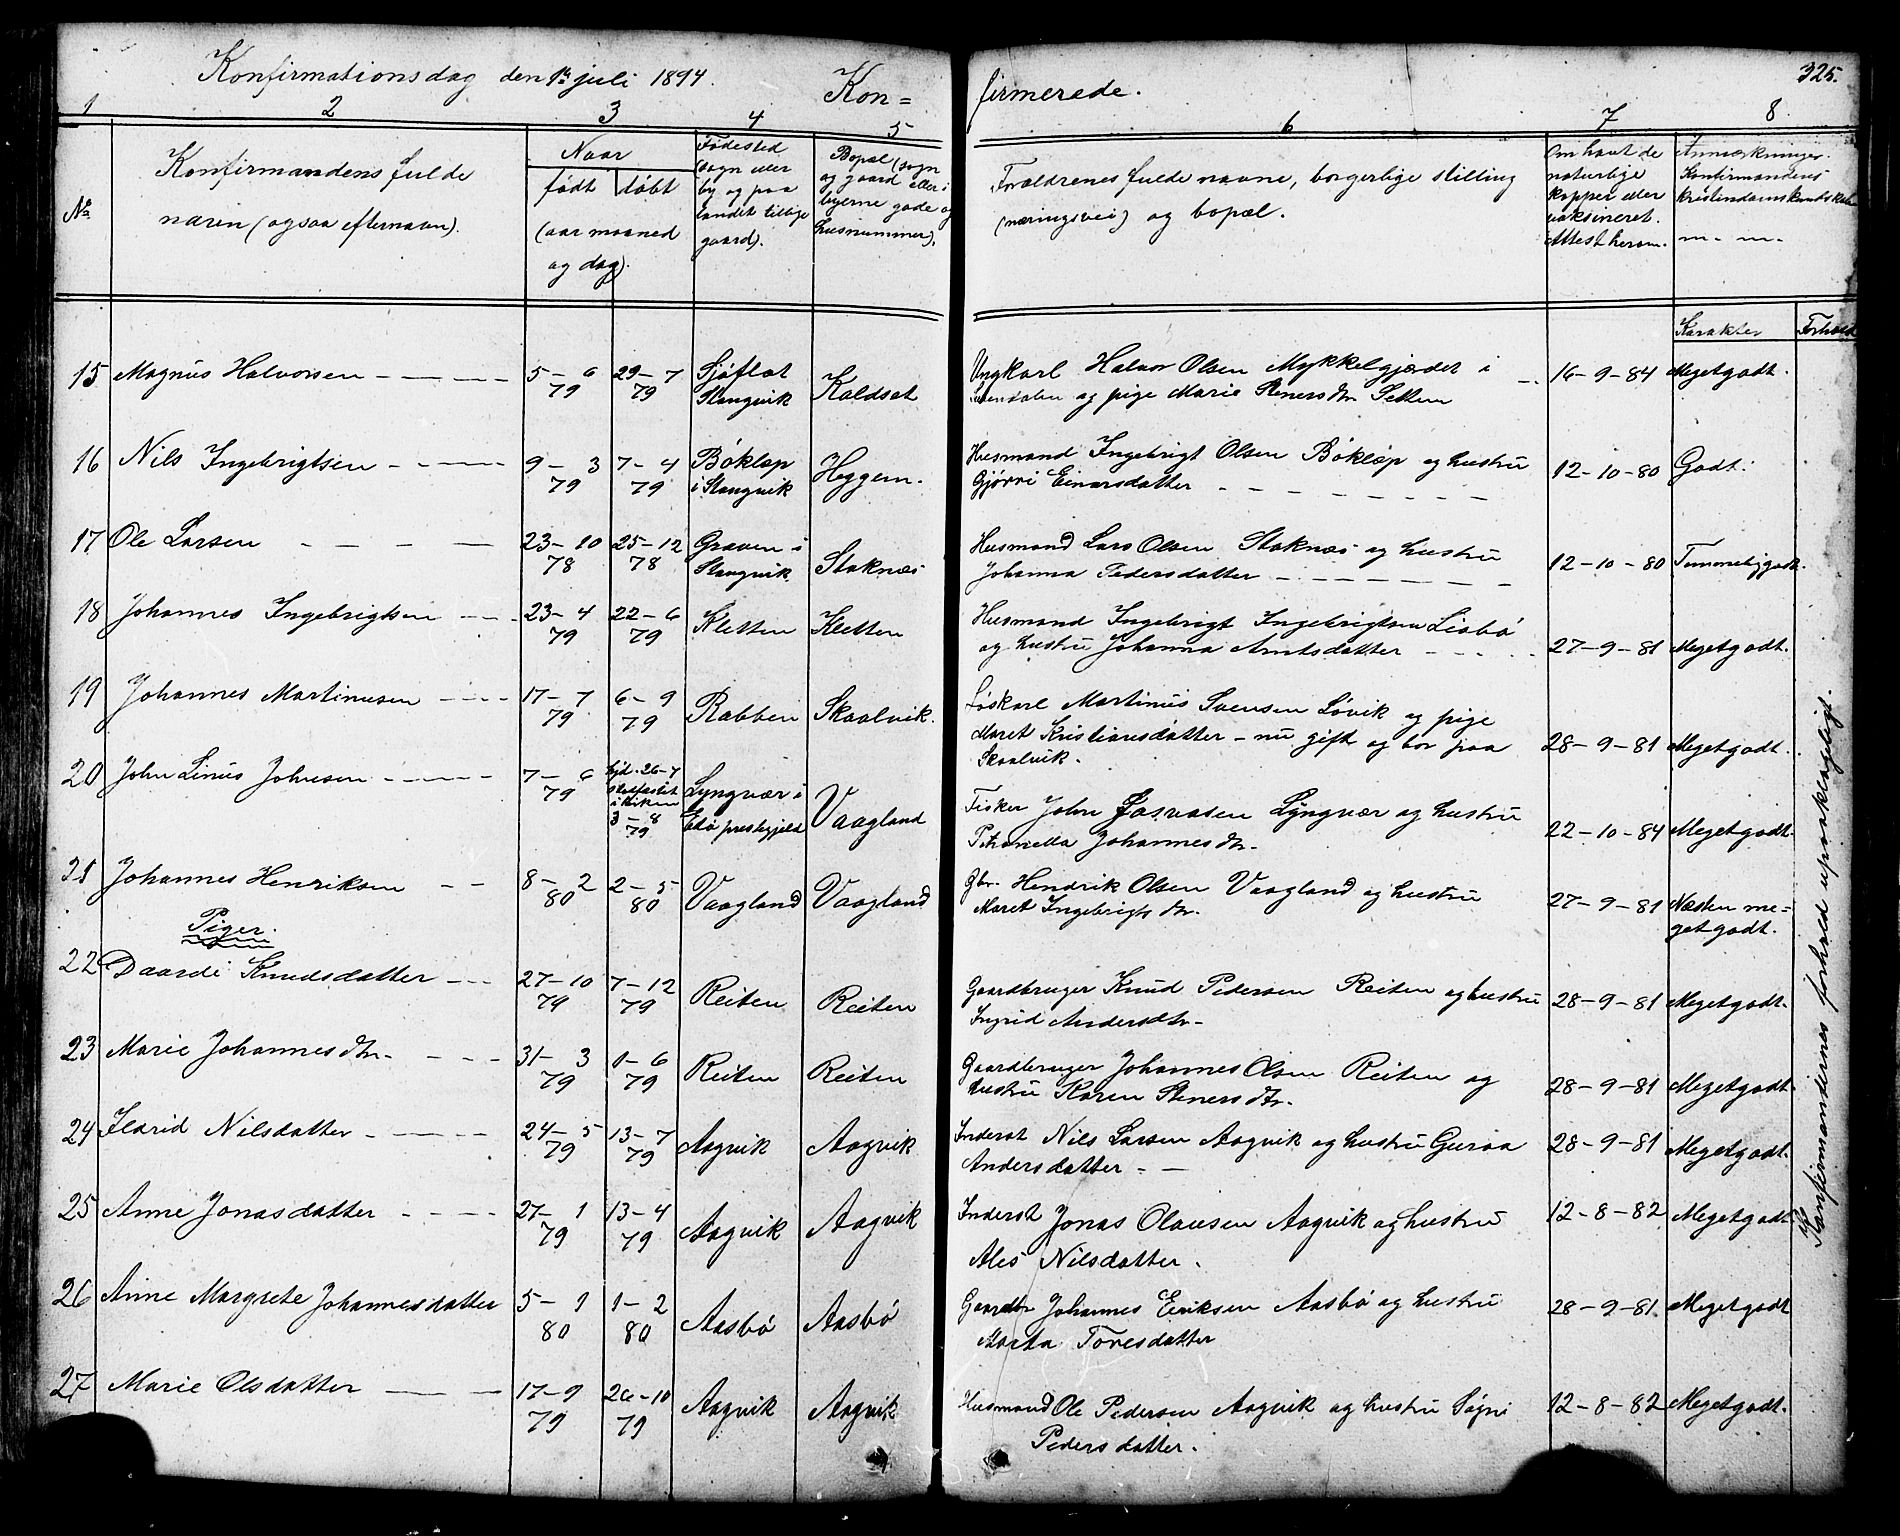 Konfirmationsdag den 1ste juli 1894.
Kon=
firmerede.
325.
1 2 3 4 5 6 7 8
No
Konfirmandens fulde
navn (ogsaa efternavn).
Naar
født døbt
(aar maaned
og dag).
Fødested
(sogn eller
by og paa
landet tillige
gaard).
Bopæl (sogn
og gaard eller i
byerne gade og
husnummer).
Forældrenes fulde navne, borgerlige stilling
(næringsvei) og bopæl.
Om havt de
naturlige
kopper eller
vaksineret.
Attest herom.
Anmærkninger.
Konfirmandens
kristendomskundskab
m. m.
Karakter Forhold
15 Magnus Halvorsen 5-6 79 29-7 79 Sjøflot Stangvik Koldset
Ungkarl Halvor Olsen Mykkelgjerdet i
og pige Marie Stenersdtr. Settem 16-9-84 Megetgodt.
16 Nils Ingebrigtsen 9-3 79 7-4 79 Bøklep i Stangvik Heggem.
Husmand Ingebrigt Olsen Bøklep og hustru
Gjørri Einarsdatter 12-10-80 Godt.
17 Ole Larsen 23-10 78 25-12 78 Graven i Stangvik Stoknæs
Husmand Lars Olsen Stoknæs og hustru
Johanna Pedersdatter 12-10-80 Temmeliggodt.
18 Johannes Ingebrigtsen 23-4 79 22-6 79 Kletten Kletten
Husmand Ingebrigt Ingebrigtsen Liabø
og hustru Johanna Arntsdatter 27-9-81 Megetgodt.
19 Johannes Martinusen 17-7 79 6-9 79 Rabben Skaalvik.
Løskarl Martinus Svensen Løvik og pige
Maret Kristiansdatter - nu gift og bor paa
Skaalvik. 28-9-81 Megetgodt.
20 John Linus Johnsen 7-6 79 hjd. 26-7 stadfæstet i kirken 3-8 79 Lyngvær i Edø prestegjeld Vaagland
Fisker John Lyngvær og hustru
Petronella Johannesdtr. 22-10-84 Megetgodt.
21 Johannes Henriksen 8-2 80 2-5 80 Vaagland Vaagland
Gbr. Hendrik Olsen Vaagland og hustru
Maret Ingebrigtsdtr. 27-9-81 Næsten me=
getgodt.
Piger.
22 Daardi Knudsdatter 27-10 79 7-12 79 Reiten Reiten
Gaardbruger Knud Pedersen Reiten og hustru
Ingrid Andersdtr. 28-9-81 Megetgodt.
23 Marie Johannesdtr. 31-3 79 1-6 79 Reiten Reiten
Gaardbruger Johannes Olsen Reiten og
hustru Karen Stenersdtr. 28-9-81 Megetgodt.
24 Ildrid Nilsdatter 24-5 79 13-7 79 Aagvik Aagvik
Inderst Nils Larsen Aagvik og hustru Guroa
Andersdatter 28-9-81 Megetgodt.
25 Anne Jonasdatter 27-1 79 13-4 79 Aagvik Aagvik
Inderst Jonas Olausen Aagvik og hustru
Ales Nilsdatter. 12-8-82 Megetgodt.
26 Anne Margrete Johannesdatter 5-1 80 1-2 80 Aasbø Aasbø
Gaardbr Johannes Eriksen Aasbø og hustru
Marta Toresdatter 28-9-81. Megetgodt
27 Marie Olsdatter 17-9 79 26-10 79 Aagvik Aagvik
Husmand Ole Pedersen Aagvik og hustru Søgni
Pedersdatter. 12-8-82 Megetgodt.
Konfirmandernes forhold upaaklageligt.